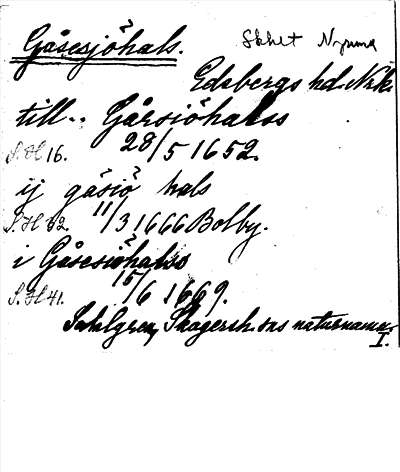 Gåsesjöhals.
Edsbergs hd. Nrk.
till.. Gårsiöhalss
S. H 16. 28/5 1652.
ij gåsiö hals
S. H 32. 11/3 1666 Bolby.
i Gåsesiöhalss
S. H 41. 15/6 1669.
Sahlgren, Skagersh. sns naturnamn
I.